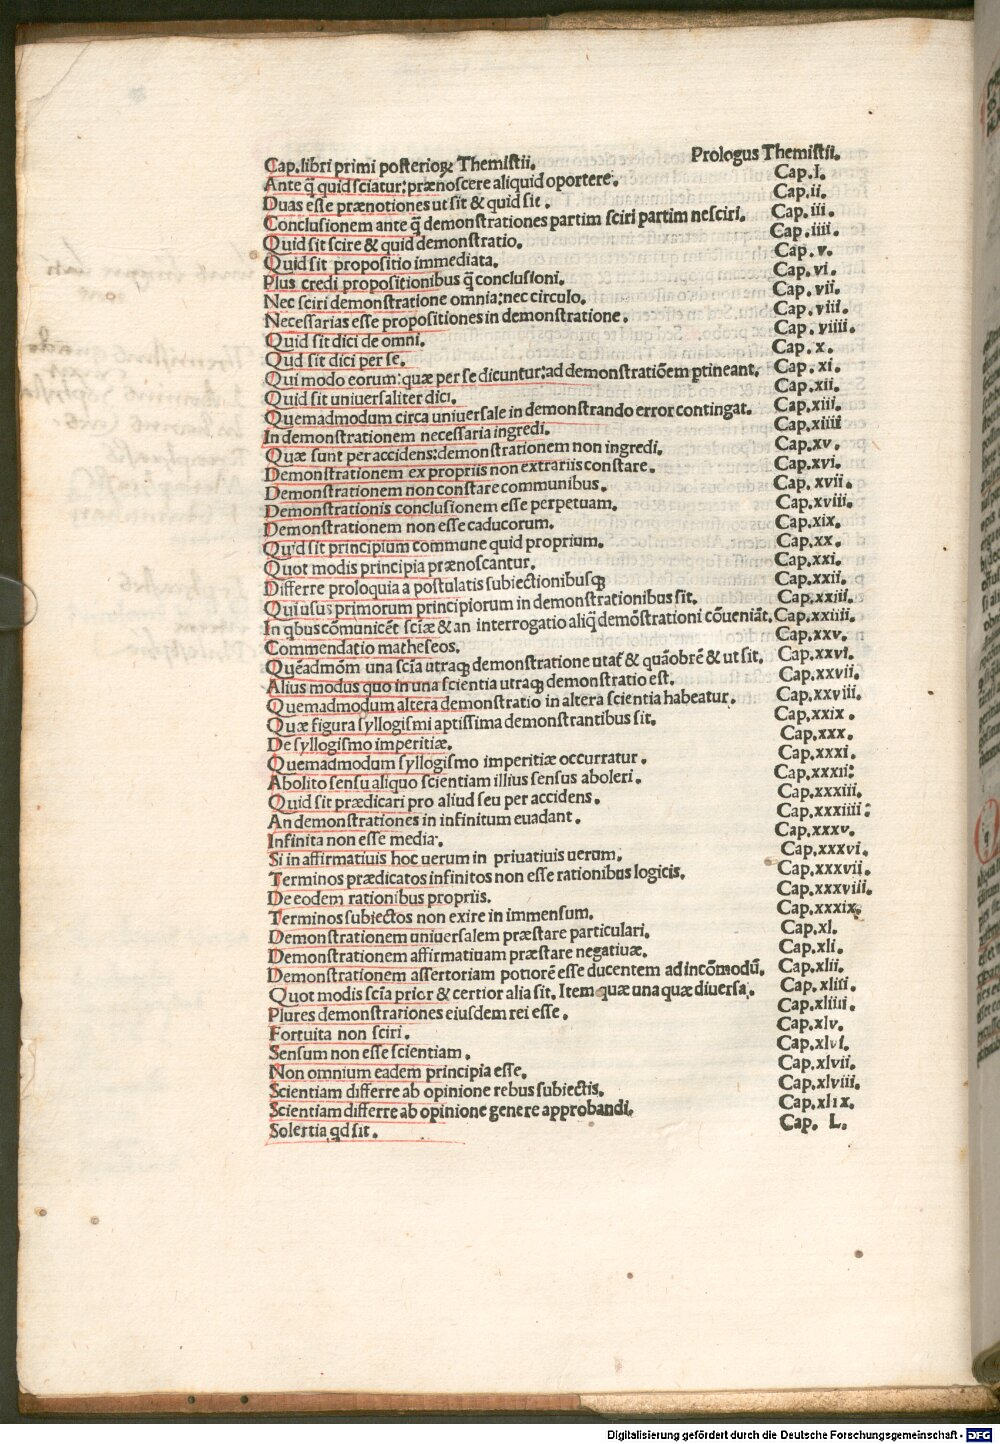 Cap.libri primi posterioꝝ Themistii. Prologus Themistii.
Ante q̃ quid sciatur: prænoscere aliquid oportere. Cap.I.
Duas esse prænotiones ut sit & quid sit. Cap.ii.
Conclusionem ante q̃ demonstrationes partim sciri partim nesciri. Cap.iii.
Quid sit scire & quid demonstratio. Cap.iiii.
Quid sit propositio immediata. Cap.v.
Plus credi propositionibus q̃ conclusioni. Cap.vi.
Nec sciri demonstratione omnia: nec circulo. Cap.vii.
Necessarias esse propositiones in demonstratione. Cap.viii.
Quid sit dici de omni. Cap.viiii.
Qud sit dici per se. Cap.x.
Qui modo eorum: quæ per se dicuntur: ad demonstratiõem ptineant. Cap.xi.
Quid sit uniuersaliter dici. Cap.xii.
Quemadmodum circa uniuersale in demonstrando error contingat. Cap.xiii.
In demonstrationem necessaria ingredi. Cap.xiiii
Quæ sunt per accidens: demonstrationem non ingredi. Cap.xv.
Demonstrationem ex propriis non extrariis constare. Cap.xvi.
Demonstrationem non constare communibus. Cap.xvii.
Demonstrationis conclusionem esse perpetuam. Cap.xviii.
Demonstrationem non esse caducorum. Cap.xix.
Quid sit principium commune quid proprium. Cap.xx.
Quot modis principia prænoscantur. Cap.xxi.
Differre proloquia a postulatis subiectionibusq; Cap.xxii.
Qui usus primorum principiorum in demonstrationibus sit. Cap.xxiii.
In qbus cõmunicẽt sciæ & an interrogatio aliq̃ demõstrationi cõueniãt. Cap.xxiiii.
Commendatio matheseos. Cap.xxv.
Quẽadmõm una scia utraq; demonstratione utat̃ & quãobrẽ & ut sit. Cap.xxvi.
Alius modus quo in una scientia utraq; demonstratio est. Cap.xxvii.
Quemadmodum altera demonstratio in altera scientia habeatur. Cap.xxviii.
Quæ figura syllogismi aptissima demonstrantibus sit. Cap.xxix.
De syllogismo imperitiæ. Cap.xxx.
Quemadmodum syllogismo imperitiæ occurratur. Cap.xxxi.
Abolito sensu aliquo scientiam illius sensus aboleri. Cap.xxxii:
Quid sit prædicari pro aliud seu per accidens. Cap.xxxiii.
An demonstrationes in infinitum euadant. Cap.xxxiiii:
Infinita non esse media. Cap.xxxv.
Si in affirmatiuis hoc uerum in priuatiuis uerum. Cap.xxxvi.
Terminos prædicatos infinitos non esse rationibus logicis. Cap.xxxvii.
De eodem rationibus propriis. Cap.xxxviii.
Terminos subiectos non exire in immensum. Cap.xxxix.
Demonstrationem uniuersalem præstare particulari. Cap.xl.
Demonstrationem affirmatiuam præstare negatiuæ. Cap.xli.
Demonstrationem assertoriam potiorẽ esse ducentem ad incõmodũ. Cap.xlii.
Quot modis scia prior & certior alia sit. Item quæ una quæ diuersa. Cap.xliii.
Plures demonstrariones eiusdem rei esse. Cap.xliiii.
Fortuita non sciri. Cap.xlv.
Sensum non esse scientiam. Cap.xlvi.
Non omnium eadem principia esse. Cap.xlvii.
Scientiam differre ab opinione rebus subiectis. Cap.xlviii.
Scientiam differre ab opinione genere approbandi. Cap.xlix.
Solertia qd sit. Cap. L.
Digitalisierung gefördert durch die Deutsche Forschungsgemeinschaft - DFG